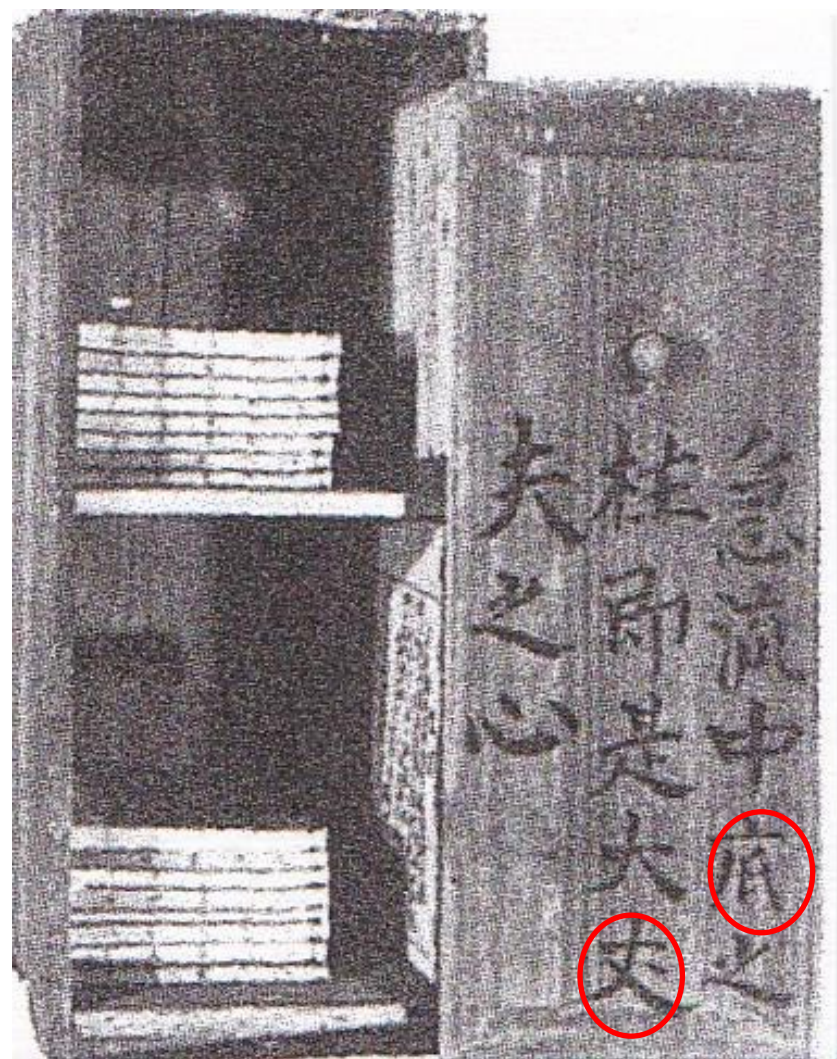 急流中底之
柱即是大丈
夫之心